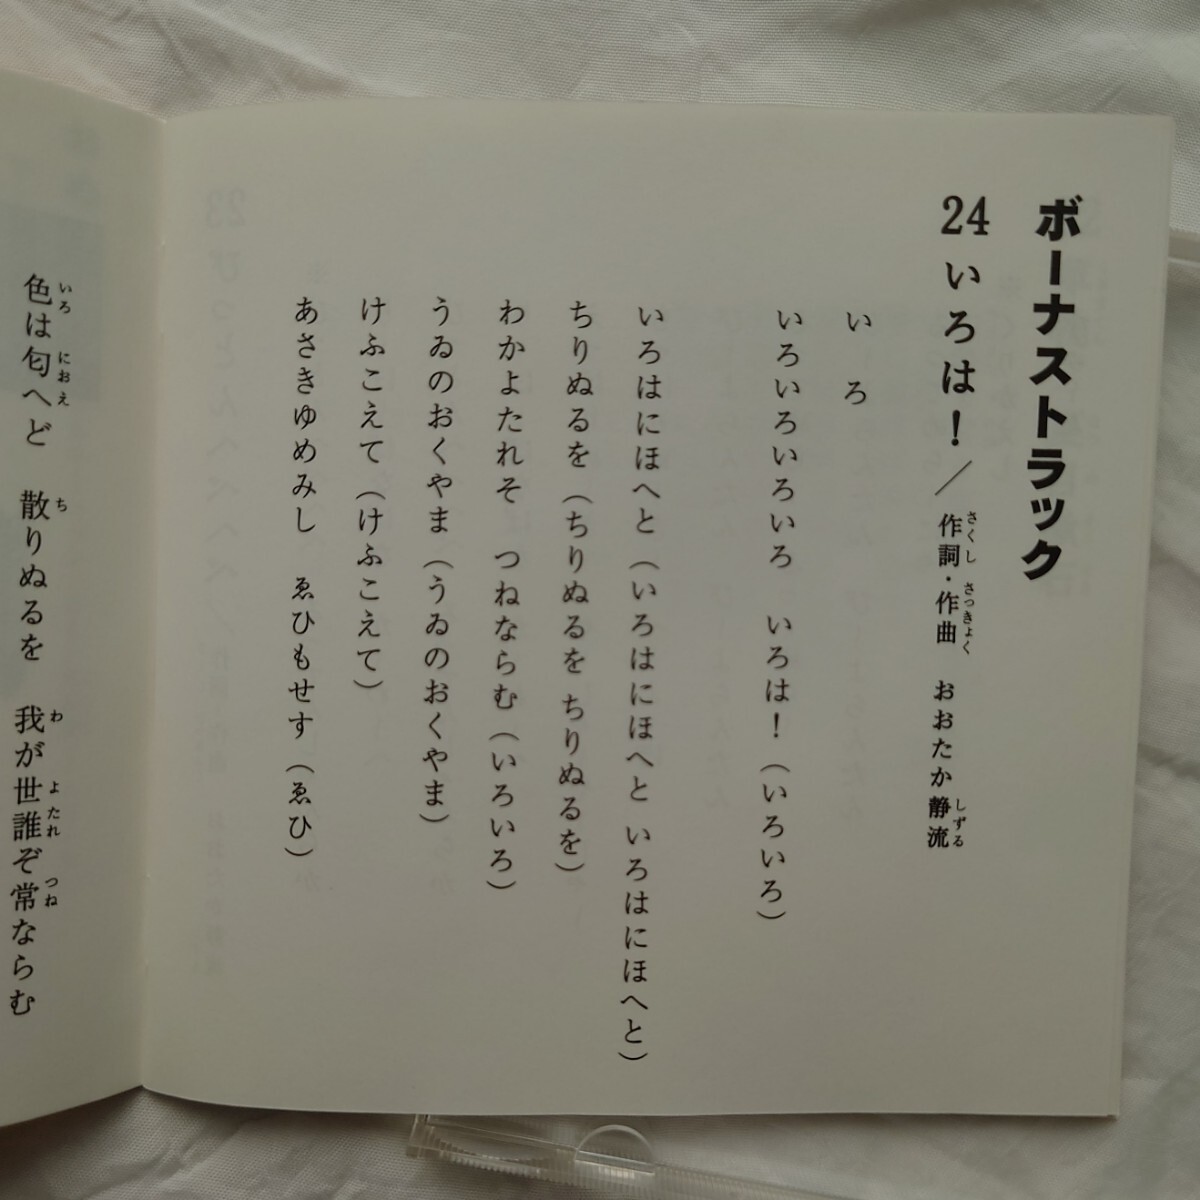 ボーナストラック
24 いろは！／作詞・作曲 おおたか静流
さくし さっきょく しずる
い ろ
いろいろいろいろ いろは！（いろいろ）
いろはにほへと（いろはにほへと いろはにほへと）
ちりぬるを（ちりぬるを ちりぬるを）
わかよたれそ つねならむ（いろいろ）
うゐのおくやま（うゐのおくやま）
けふこえて（けふこえて）
あさきゆめみし ゑひもせす（ゑひ）
色は匂へど 散りぬるを 我が世誰ぞ常ならむ
いろ におえ ち わ よ たれ つね